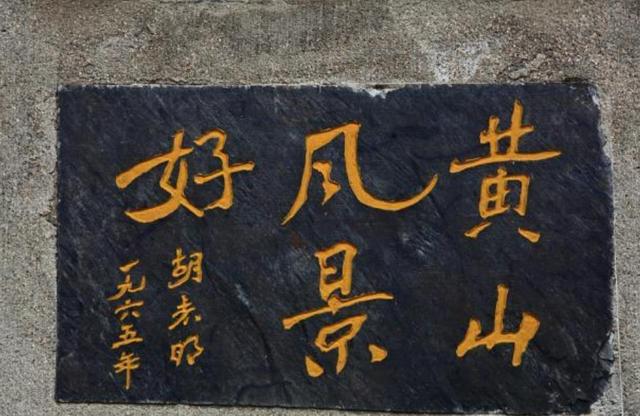 黄山
风景
好
胡志明
一九六五年